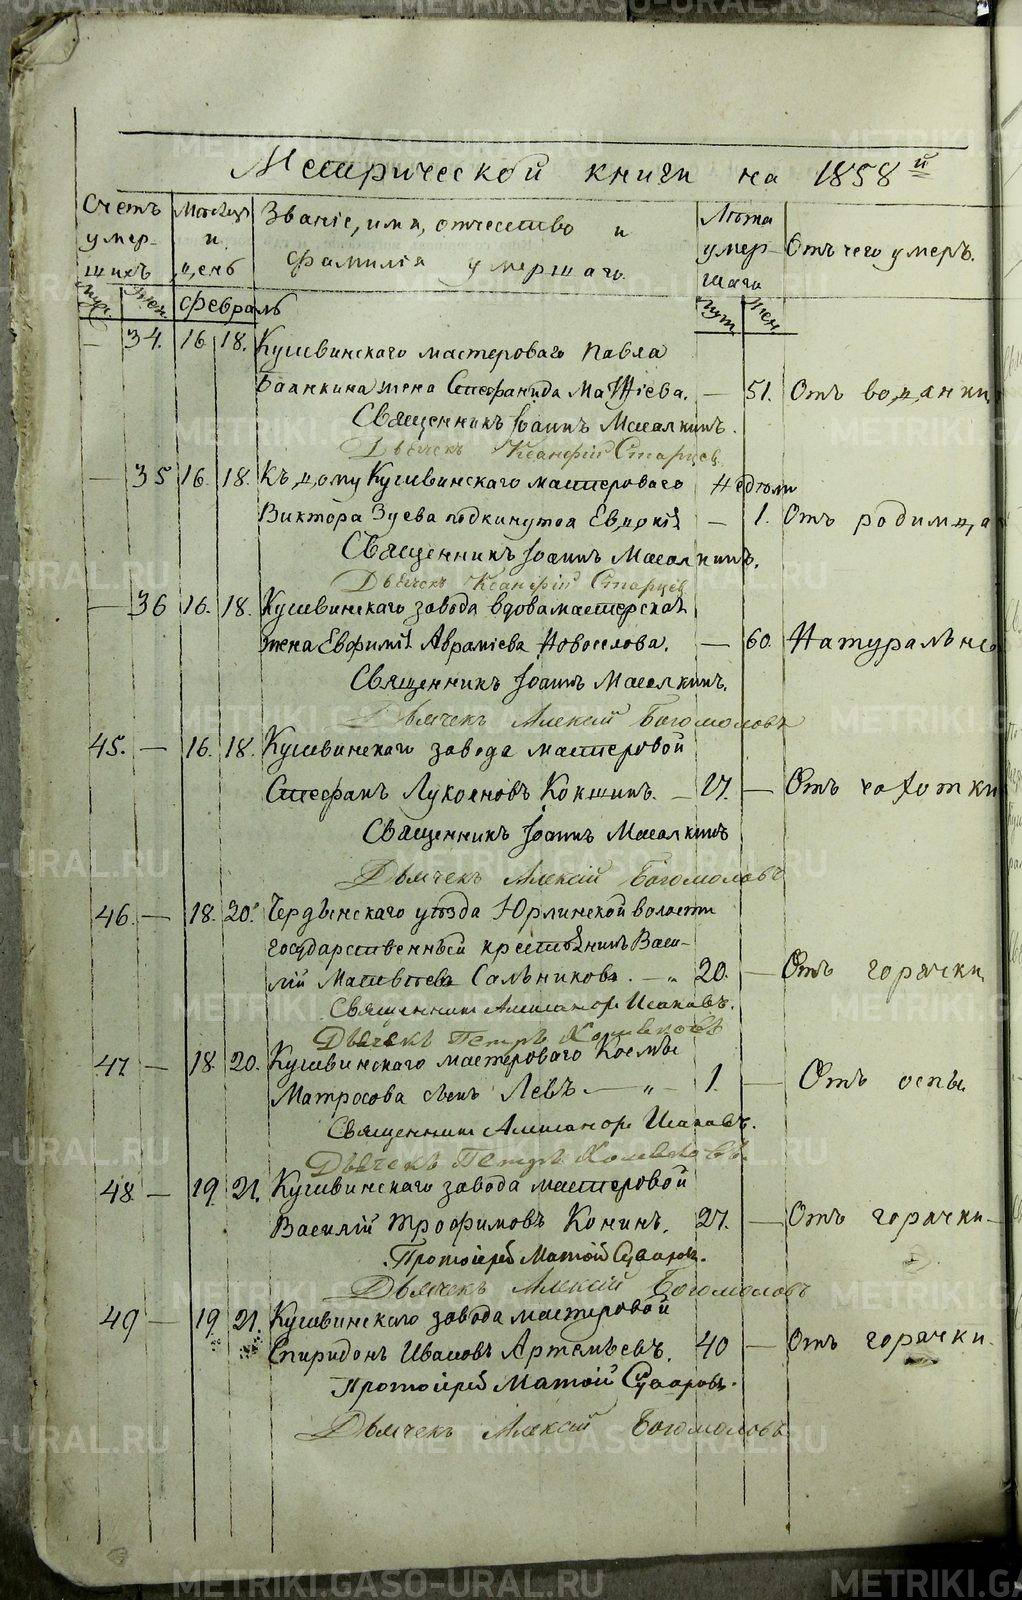 Метрической книги на 1858й
Счетъ умер- шихъ
Мѣсяцъ и день
Званіе, имя, отчество и фамилія умершаго.
Лѣта умер- шаго
Отъ чего умеръ.
муж. жен. Февраль муж. жен.
— 34. 16 18. Кушвинскаго мастероваго Павла
жена Стефанида Матѳіева. — 51. Отъ водянки
Священникъ Іоаннъ Масалкинъ.
Дьячекъ Ксанфій Старцев
— 35 16. 18. Къ дому Кушвинскаго мастероваго Недѣли
Виктора Зуева подкинутая Евдокія — 1. Отъ родимца
Священникъ Іоаннъ Масалкинъ.
Дьячекъ Ксанфій Старцев
— 36 16. 18. Кушвинскаго завода вдова мастерская
жена Евфимія Аврамiева Новоселова. — 60. Натурально
Священникъ Іоаннъ Масалкинъ.
Дьячекъ Алексій Богомоловъ
45. — 16. 18. Кушвинскаго завода мастеровой
Стефанъ Лукояновъ Кокшинъ. — 27. — Отъ чахотки
Священникъ Іоаннъ Масалкинъ
Дьячекъ Алексій Богомоловъ
46. — 18. 20. Чердынскаго уѣзда Юрлинской волости
государственный крестьянинъ Васи-
лій Матвѣевъ Сальниковъ. — " 20. — Отъ горячки
Священникъ Исаковъ.
Дьячекъ Петръ
47. — 18. 20. Кушвинскаго мастероваго Козмы
Матросова сынъ Левъ — " — 1. — Отъ оспы.
Священникъ Исаковъ.
Дьячекъ Петръ
48 — 19. 21. Кушвинскаго завода мастеровой
Василій Трофимовъ Конинъ. 27. — Отъ горячки —
Протоіерей Матѳій Суваровъ.
Дьячекъ Алексій Богомоловъ
49 — 19 21. Кушвинскаго завода мастеровой
Спиридонъ Ивановъ Артемьевъ. 40 — Отъ горячки.
Протоіерей Матѳій Суваровъ.
Дьячекъ Алексій Богомоловъ
METRIKI.GASO-URAL.RU